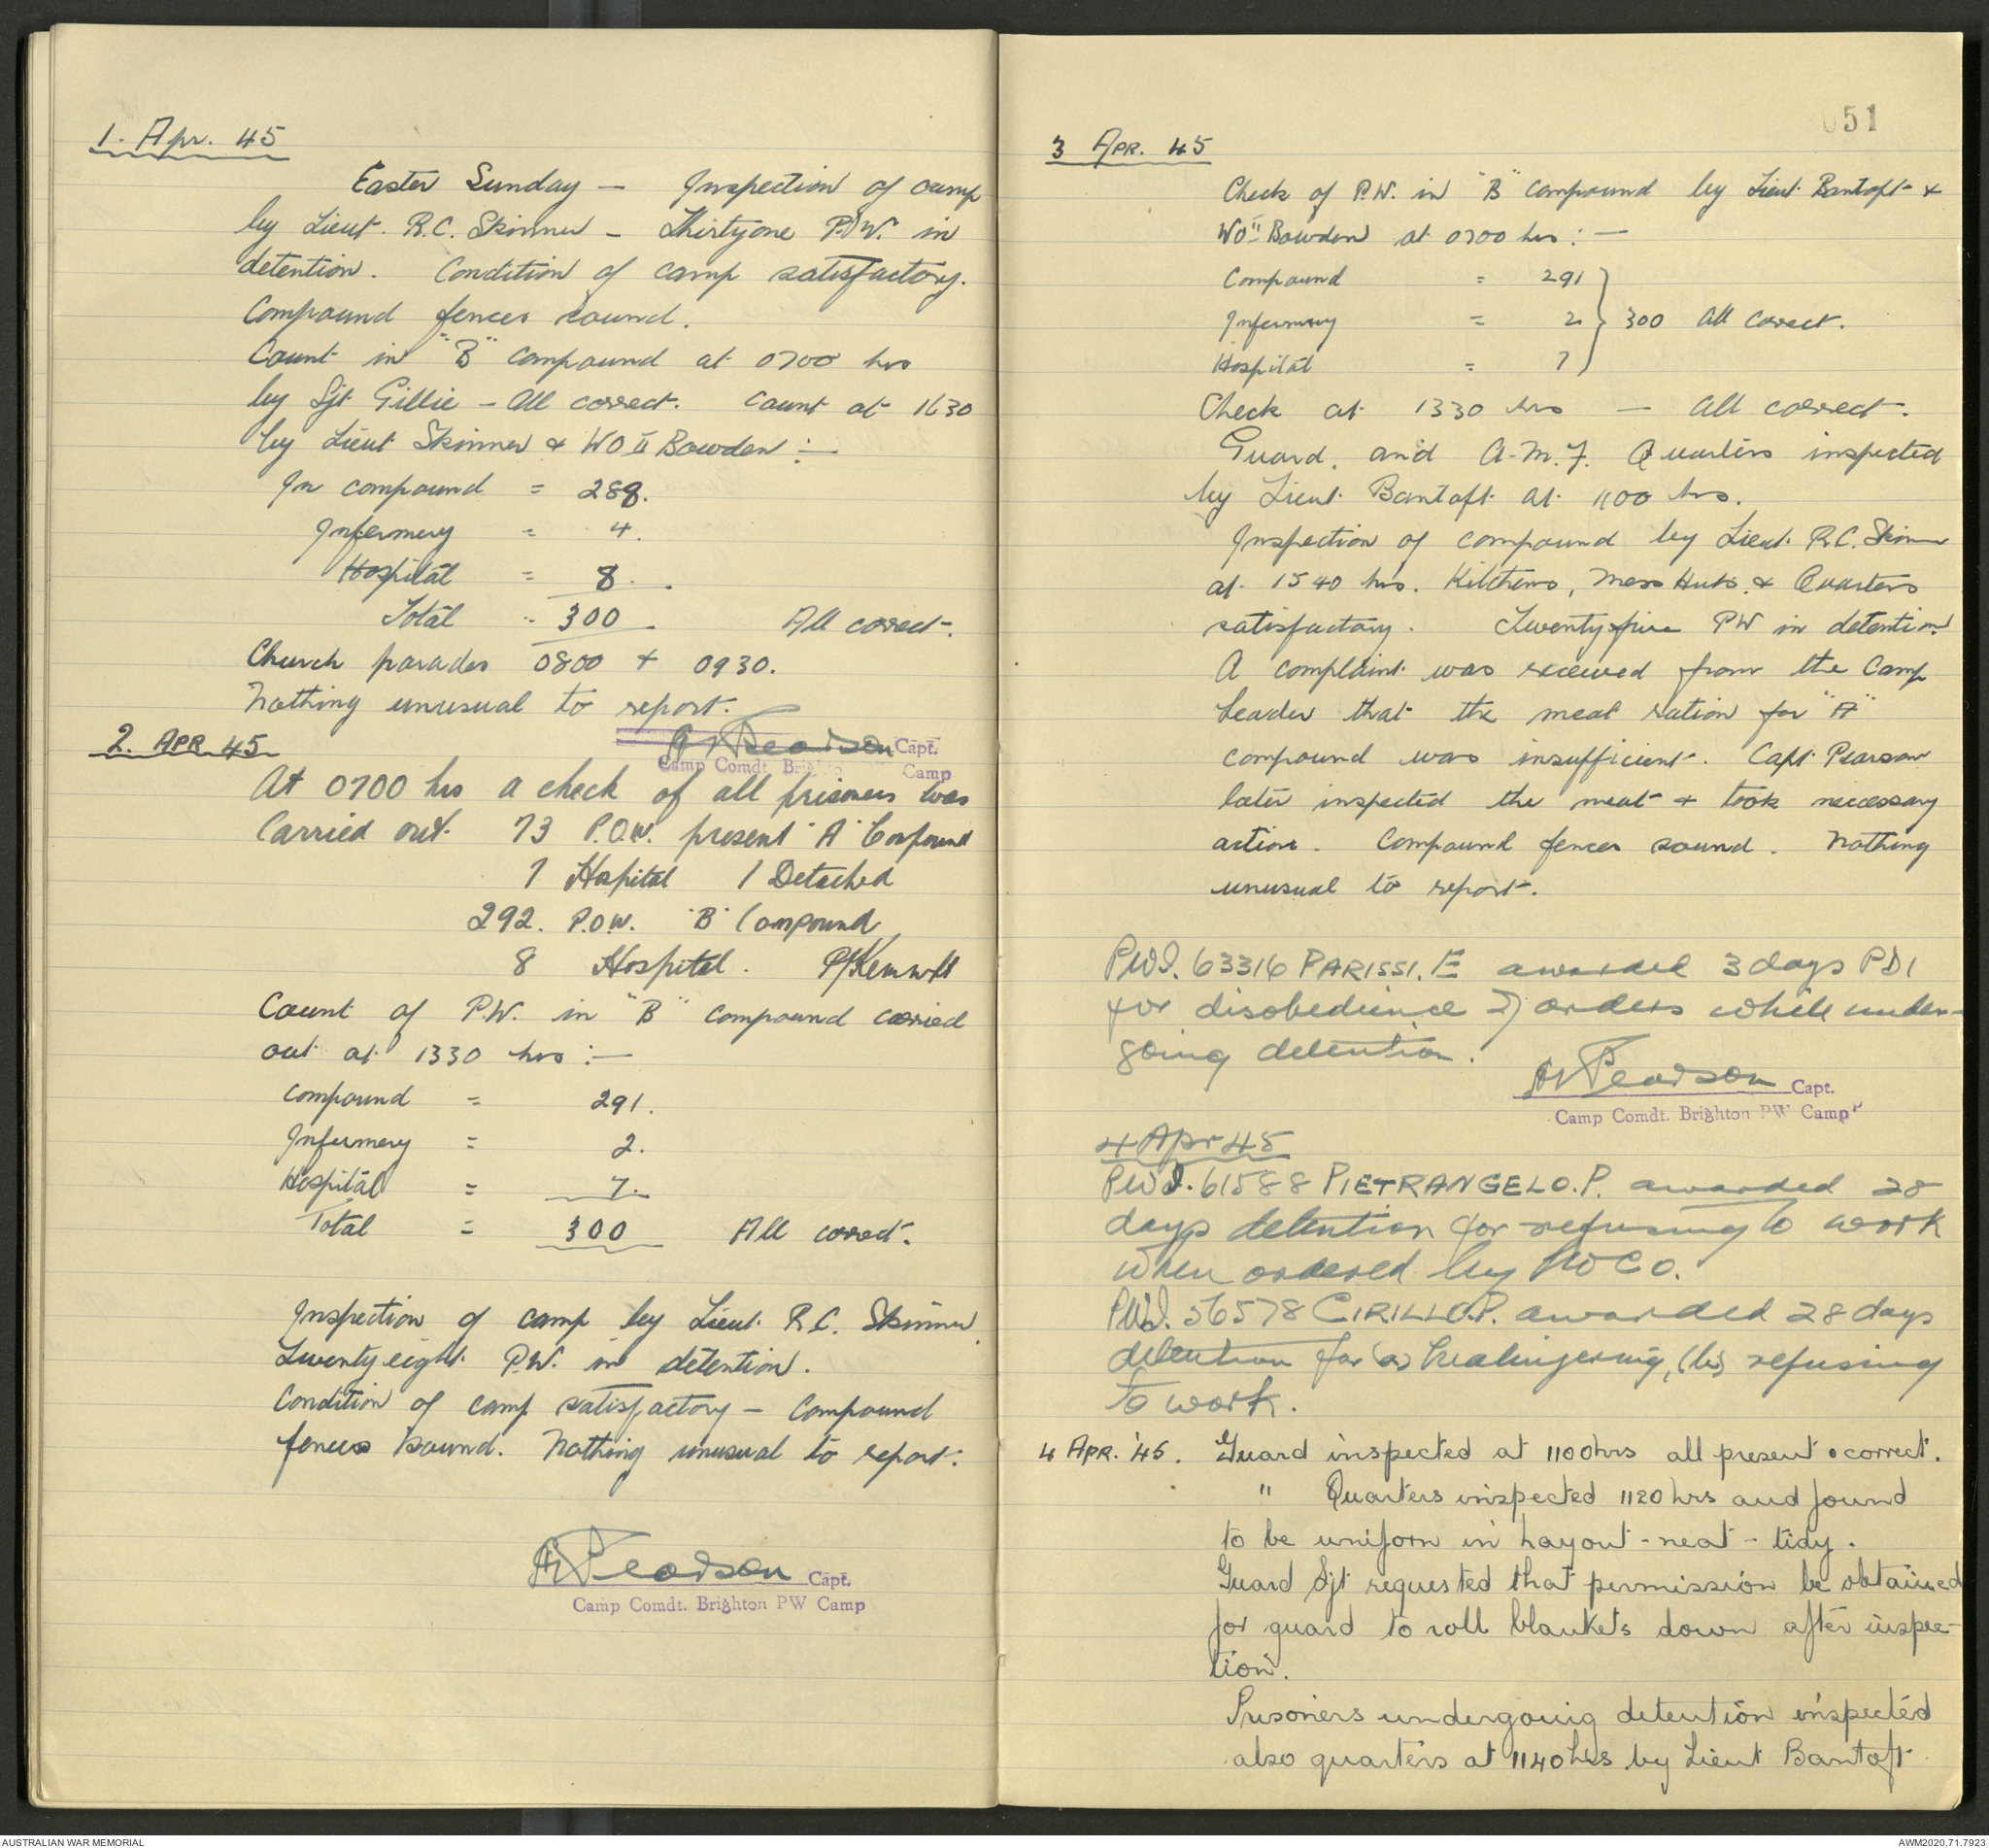 1. Apr. 45
Easter Sunday — Inspection of camp
by Lieut. R.C. Skinner — Thirtyone P.O.W. in
detention. Condition of camp satisfactory.
Compound fences sound.
Count in "B" compound at 0700 hrs
by Sjt Gillie - All correct. Count at 1630
by Lieut Skinner & WO II Bowden :—
In compound = 288.
Infermery = 4.
Hospital = 8.
Total = 300. All correct.
Church parades 0800 + 0930.
Nothing unusual to report.
Pearson Capt.
Camp Comdt. Camp
2. APR 45
At 0700 hrs a check of all prisoners was
carried out. 73 P.O.W. present "A" Compound
1 Hospital 1 Detached
292. P.O.W. "B" Compound
8 Hospital.
Count of P.W. in "B" compound carried
out at 1330 hrs :—
Compound = 291.
Infermery = 2.
Hospital = 7.
Total = 300 All correct.
Inspection of camp by Lieut. R.C. Skinner.
Twenty eight P.W. in detention.
Condition of camp satisfactory — Compound
fences sound. Nothing unusual to report.
Pearson Capt.
Camp Comdt. Brighton PW Camp
051
3 APR. 45
Check of P.W. in "B" compound by Lieut. Bantoft &
WO II Bowden at 0700 hrs :—
Compound = 291
Infermery = 2 } 300 All Correct.
Hospital = 7
Check at 1330 hrs — All correct.
Guard, and A.M.F. Quarters inspected
by Lieut. Bantoft at 1100 hrs.
Inspection of compound by Lieut. R.C. Skinner
at 1540 hrs. Kitchens, Mess Huts & Quarters
satisfactory. Twentyfive PW in detention
A complaint was received from the Camp
Leader that the meat ration for "A"
compound was insufficient. Capt Pearson
later inspected the meat & took necessary
action. Compound fences sound. Nothing
unusual to report.
PWI. 63316 PARISSI. E awarded 3 days PDI
for disobedience of orders while under-
going detention.
Pearson Capt.
Camp Comdt. Brighton PW Camp
4 Apr 45
PWI. 61588 PIETRANGELO.P. awarded 28
days detention for refusing to work
when ordered by NCO.
PWI. 56578 CIRILLO.P. awarded 28 days
detention for (a) malingering, (b) refusing
to work.
4 APR. '45. Guard inspected at 1100hrs all present & correct.
" Quarters inspected 1120 hrs and found
to be uniform in layout - neat - tidy.
Guard Sjt requested that permission be obtained
for guard to roll blankets down after inspec-
tion.
Prisoners undergoing detention inspected
also quarters at 1140 hrs by Lieut Bantoft
AUSTRALIAN WAR MEMORIAL
AWM2020.71.7923